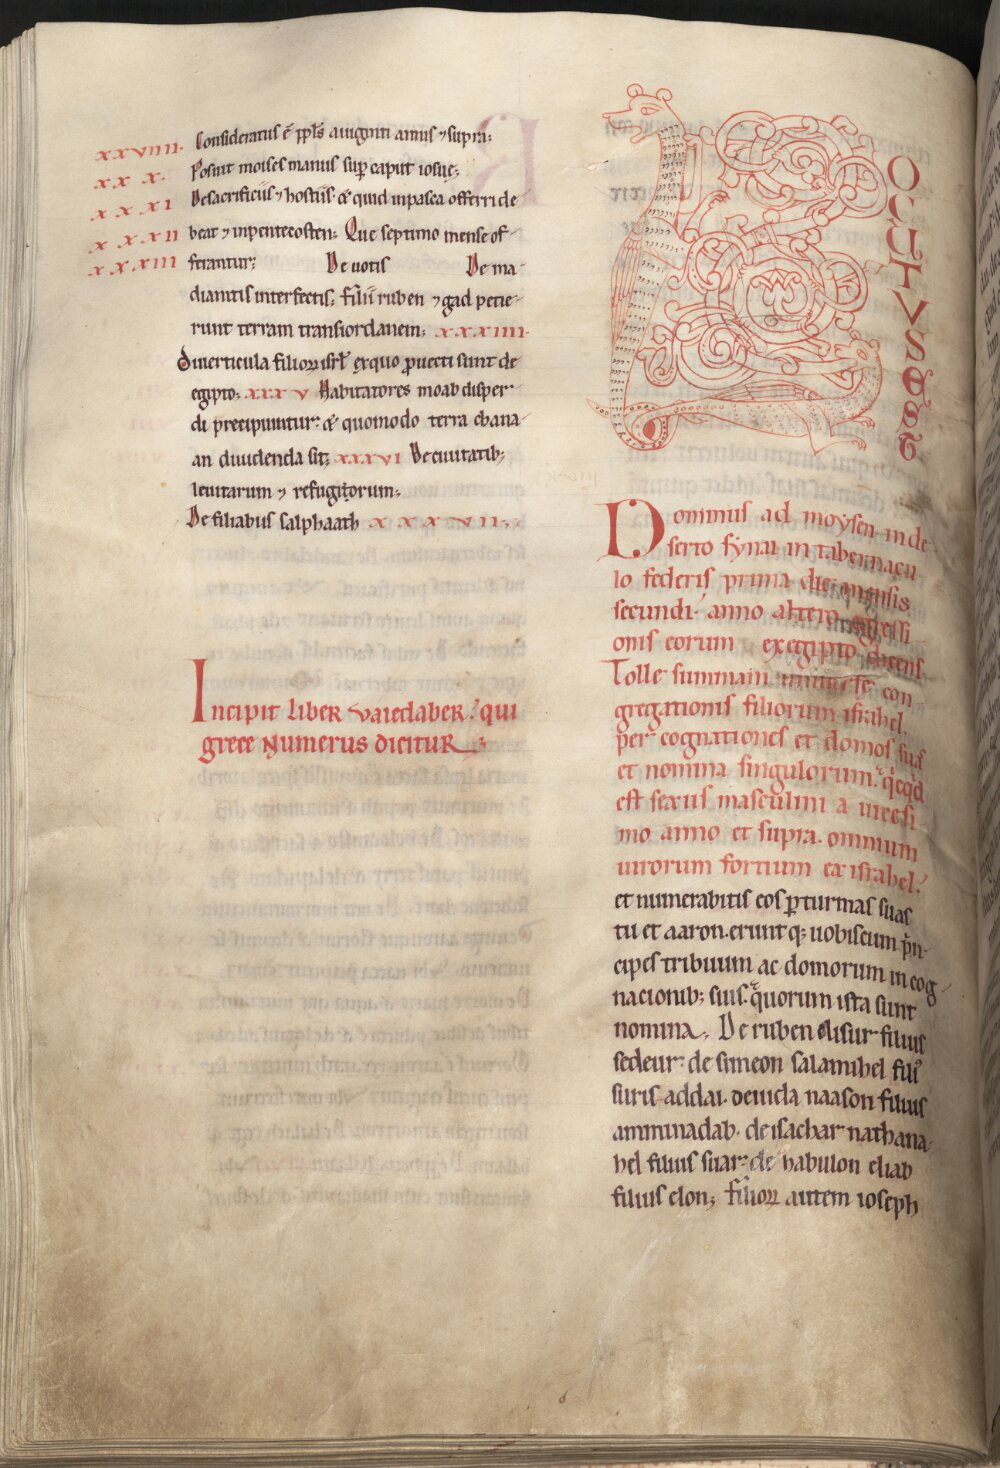 xxviiii. Consideratus ē ppl's a uiginti annis ⁊ supra;
xx x. Posuit moises manus sup caput iosue;
x x xi De sacrificiis ⁊ hostiis · & quid in pasca offerri de
x x xii beat ⁊ in pentecosten; Que septimo mense of-
x x xiii ferantur; De uotis De ma-
dianitis interfectis; filii ruben ⁊ gad petie-
runt terram transiordanem; xxxiiii.
Diuerticula filioꝝ isrl' ex quo puecti sunt de
egipto; xxx v Habitatores moab disper
di precipiuntur; & quomodo terra chana-
an diuidenda sit; xxxvi De ciuitatib;
leuitarum ⁊ refugitorum;
De filiabus salphaath x x x v ii;
Incipit liber vaiedaber; qui
grece Numerus dicitur;
LOCUTUS EST
Dominus ad moysen in de
serto synai in tabernacu
lo federis prima die mensis
secundi · anno altero egressi
onis eorum ex egipto dicens
Tolle summam uniuerse con
gregationis filiorum israhel.
per cognationes et domos suas
et nomina singulorum. qͥcqͥd
est sexus masculini a uicesi
mo anno et supra. omnium
uirorum fortium ex israhel;
et numerabitis eos ꝑ turmas suas
tu et aaron. eruntq; uobiscum pͥn-
cipes tribuum ac domorum in cog-
nacionib; suis. quorum ista sunt
nomina; De ruben elisur filius
sedeur; de simeon salamihel filiꝰ
suris addai. de iuda naason filius
amminadab. de isachar nathana-
hel filius suar; de habulon eliab
filius elon; filioꝝ autem ioseph